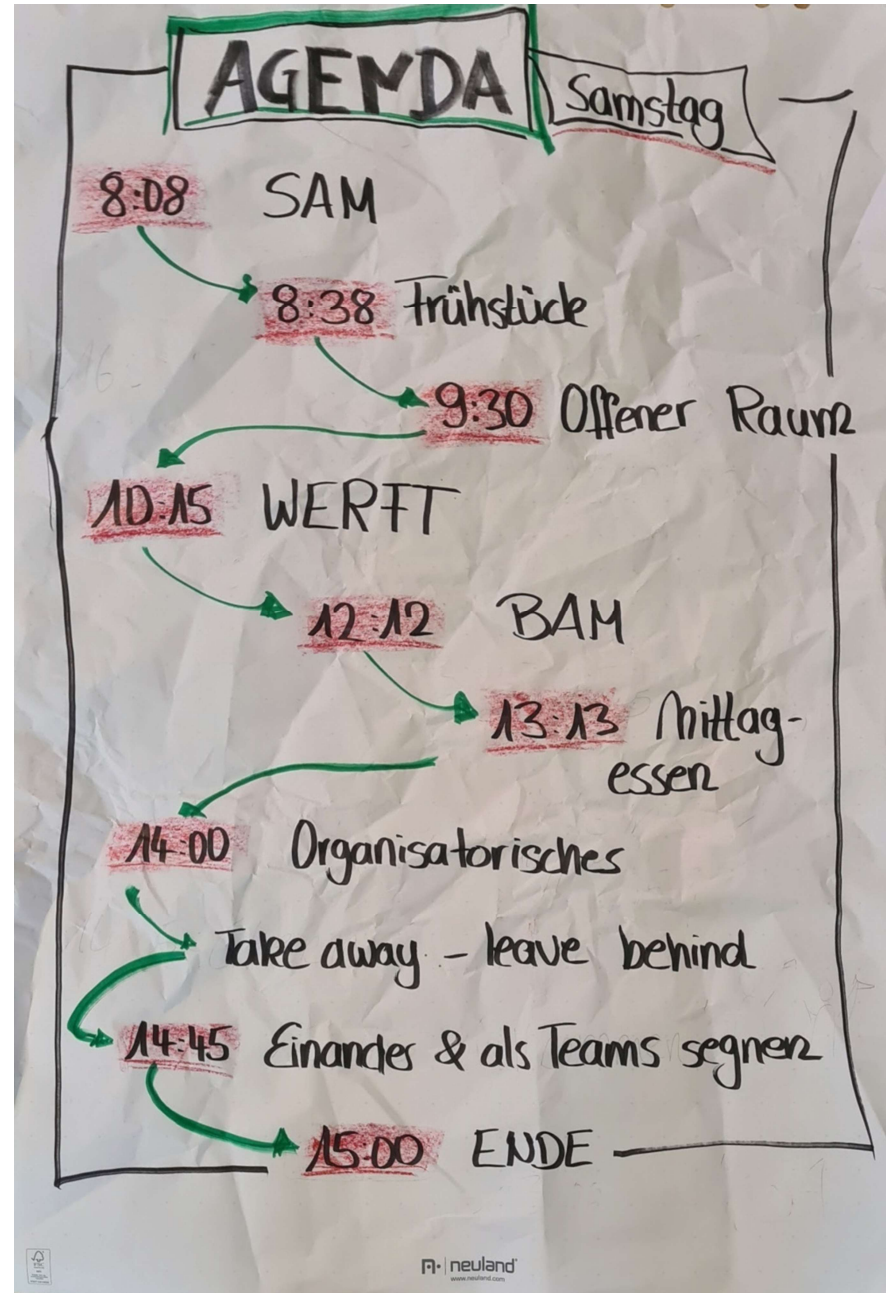 AGENDA
Samstag
8:08 SAM
8:38 Frühstück
9:30 Offener Raum
10:15 WERFT
12:12 BAM
13:13 Mittag-
essen
14:00 Organisatorisches
Take away - leave behind
14:45 Einander & als Teams segnen
15:00 ENDE
neuland
www.neuland.com